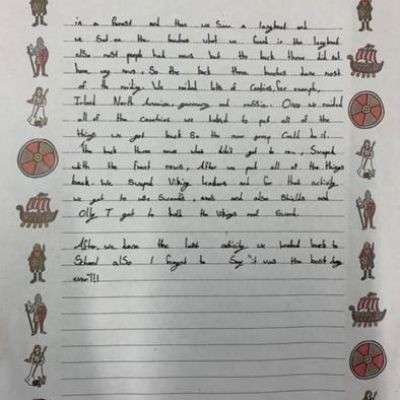 in a forest and then we saw a longboat and
we sat on the benches what we found in the longboat
also most people had oars but the back three did not
have any oars, So the back three benches have most
of the rowing. We raided lots of Countries, for example,
Ireland North America, germany and russia. Once we raided
all of the Countries we had to put all of the
things we got back So the next group Could do it.
The back three rows what didn't get to row, Swaped
with the front rows, After we put all of the things
back. We Swaped Viking leaders and for that activity
we got to use Swords, axes and also Shields and
Olly T got to hold the vikings real Sword.
After, we done the last activity we walked back to
School also I forgot to Say "it was the best day
ever"!!!